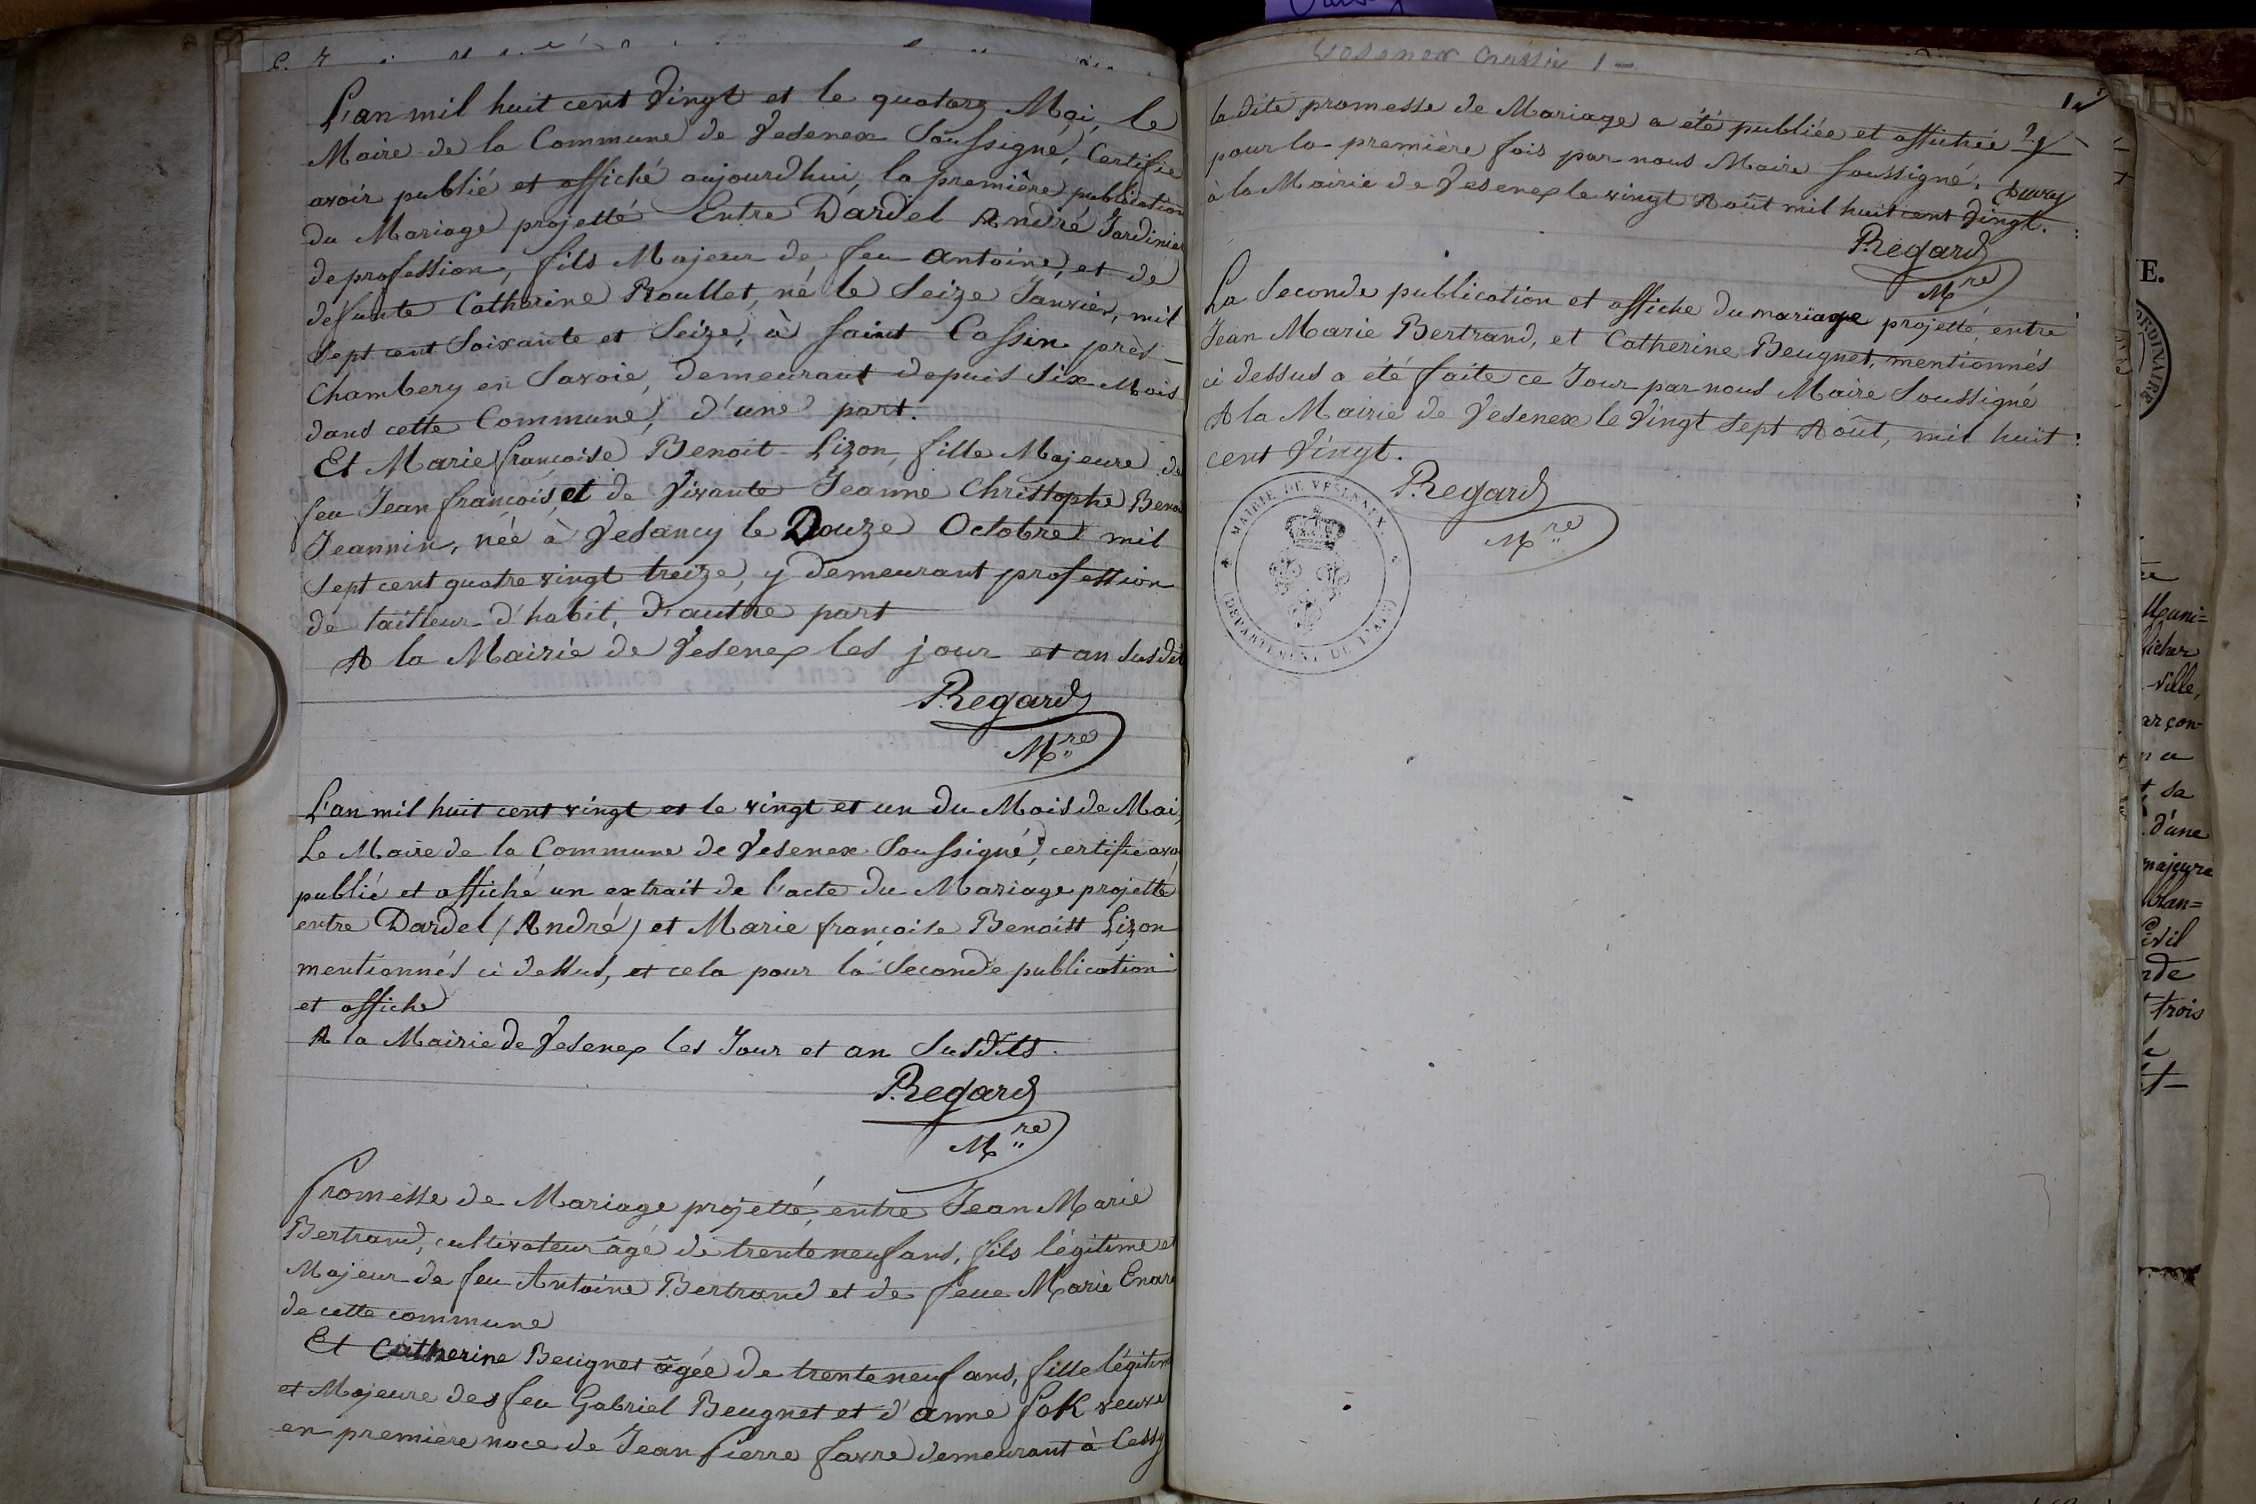 L'an mil huit cent vingt et le quatorz Mai, le
Maire de la Commune de Vesenex Soussigné, Certifie
avoir publié et affiché aujourdhui, la première publication
du Mariage projetté Entre Dardel André Jardinier
de profession, fils Majeur de feu Antoine, et de
defunte Catherine Roullet, né le Seize Janvier, mil
Sept cent Soixante et Seize, à Saint Cassin près
Chambery en Savoie, demeurant depuis Six Mois
dans cette Commune, d'une part.
Et Marie françoise Benoit Lizon, fille Majeure de
feu Jean françois, et de Vivante Jeanne Christophe
Jeannin, née à Vesancy le Douze Octobre mil
Sept cent quatre vingt treize, y demeurant profession
de tailleur d'habit, d'autre part
A la Mairie de Vesenex les jour et an susdit
Regard
Mre
L'an mil huit cent vingt et le vingt et un du Mois de Mai,
Le Maire de la Commune de Vesenex Soussigné, certifie avoi
publié et affiché un extrait de l'acte du Mariage projetté
entre Dardel (André) et Marie françoise Benoitt Lizon
mentionnés ci dessus, et cela pour la Seconde publication
et affiche
A la Mairie de Vesenex les Jour et an Susdits.
Regard
Mre
Promesse de Mariage projetté, entre Jean Marie
Bertrand, cultivateur âgé de trente neuf ans, fils légitime et
Majeur de feu Antoine Bertrand et de feue Marie
de cette commune
Et Catherine Beugnet âgée de trente neuf ans, fille légitim
et Majeure des feu Gabriel Beugnet et d'anne veuve
en première noce de Jean Pierre favre demeurant à Cessy
Vesenex Crassier 1
la dite promesse de Mariage a été publiée et affichée
pour la première fois par nous Maire Soussigné.
à la Mairie de Vesenex le vingt Août mil huit cent vingt.
Regard
Mre
La Seconde publication et affiche du mariage projetté, entre
Jean Marie Bertrand, et Catherine Beugnet, mentionnés
ci dessus a été faite ce Jour par nous Maire Soussigné
A la Mairie de Vesenex le Vingt Sept Août, mil huit
cent Vingt.
Regard
Mre
MAIRIE DE VESENEX
(DÉPARTEMENT DE L'AIN)
E.
ville,
sa
d'une
majeure
trois